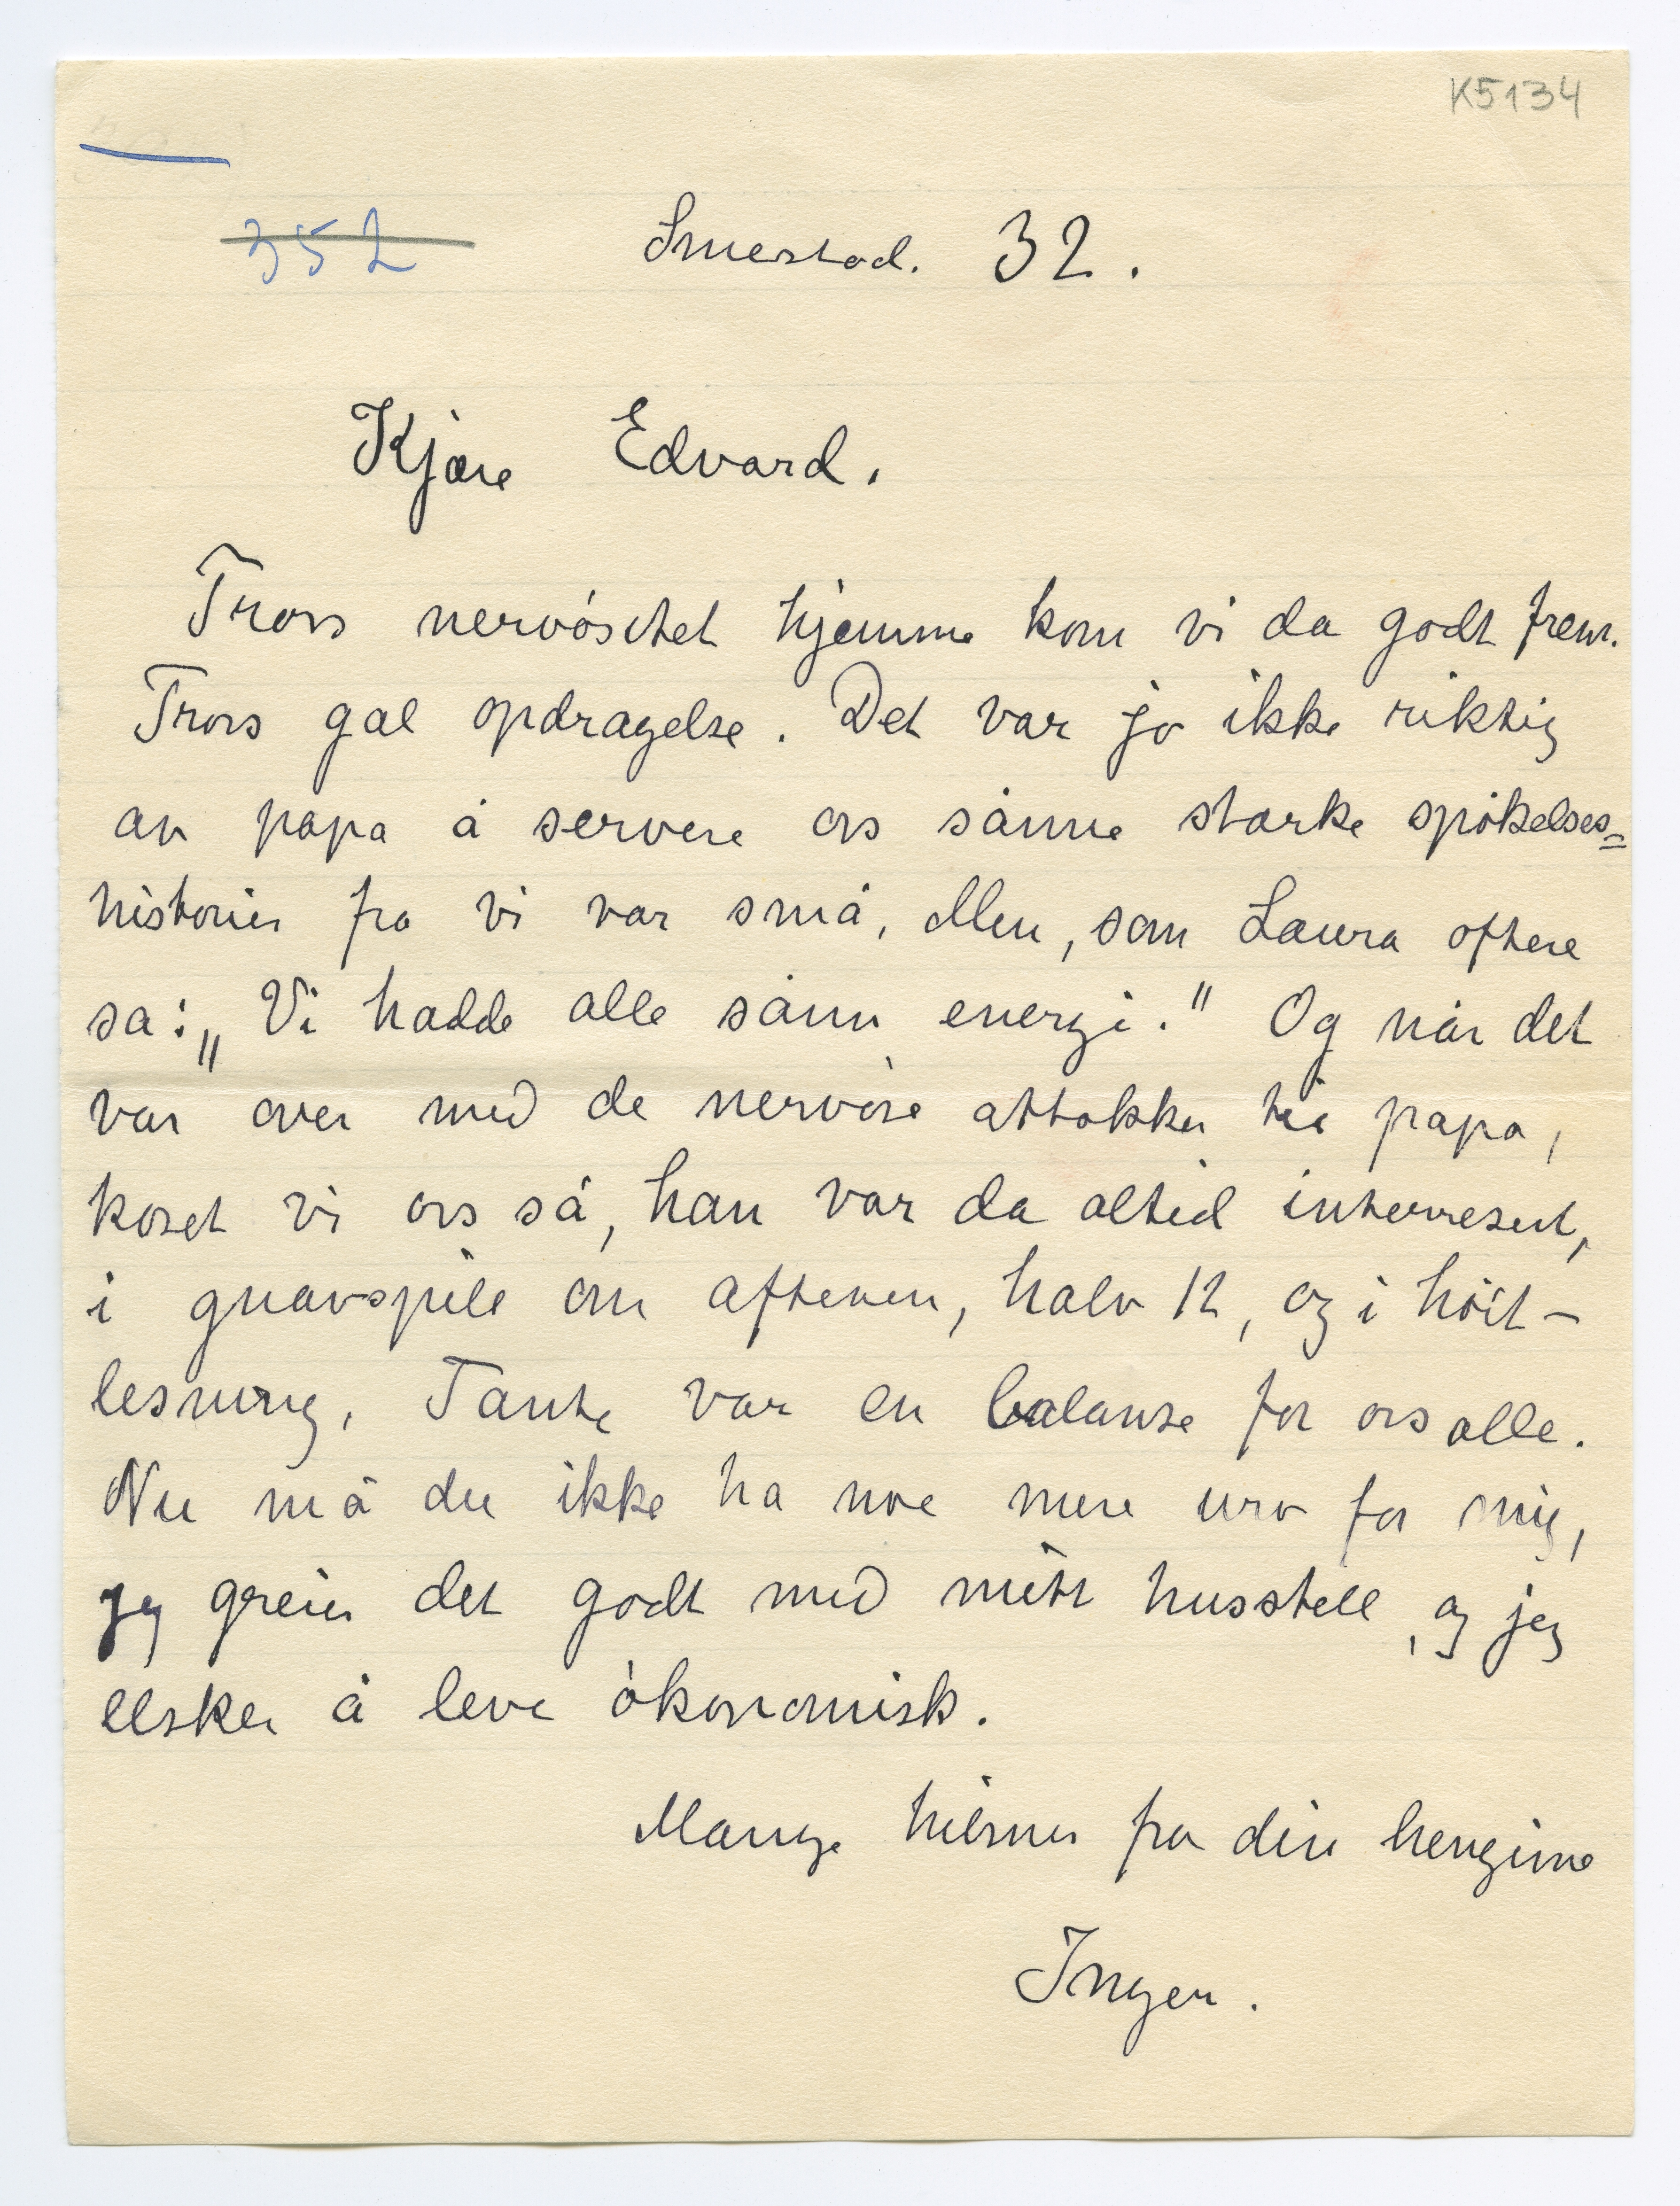 K5134
352
Smestad. 32.
Kjære Edvard.
Tross nervøsitet hjemme kom vi da godt frem.
Tross gal opdragelse. Det var jo ikke riktig
av papa å servere oss sånne sterke spøkelses=
historier fra vi var små, Men, som Laura oftere
sa: „Vi hadde alle sånn energi." Og når det
var over med de nervøse attakker til papa,
koset vi oss så, han var da altid interresert,
i gnavspill om aftenen, halv 12, og i höit-
lesning. Tante var en balanse for oss alle.
Nu må du ikke ha noe mere uro for mig,
jeg greier det godt med mitt husstell, og jeg
elsker å leve økonomisk.
Mange hilsner fra din hengivne
Inger.